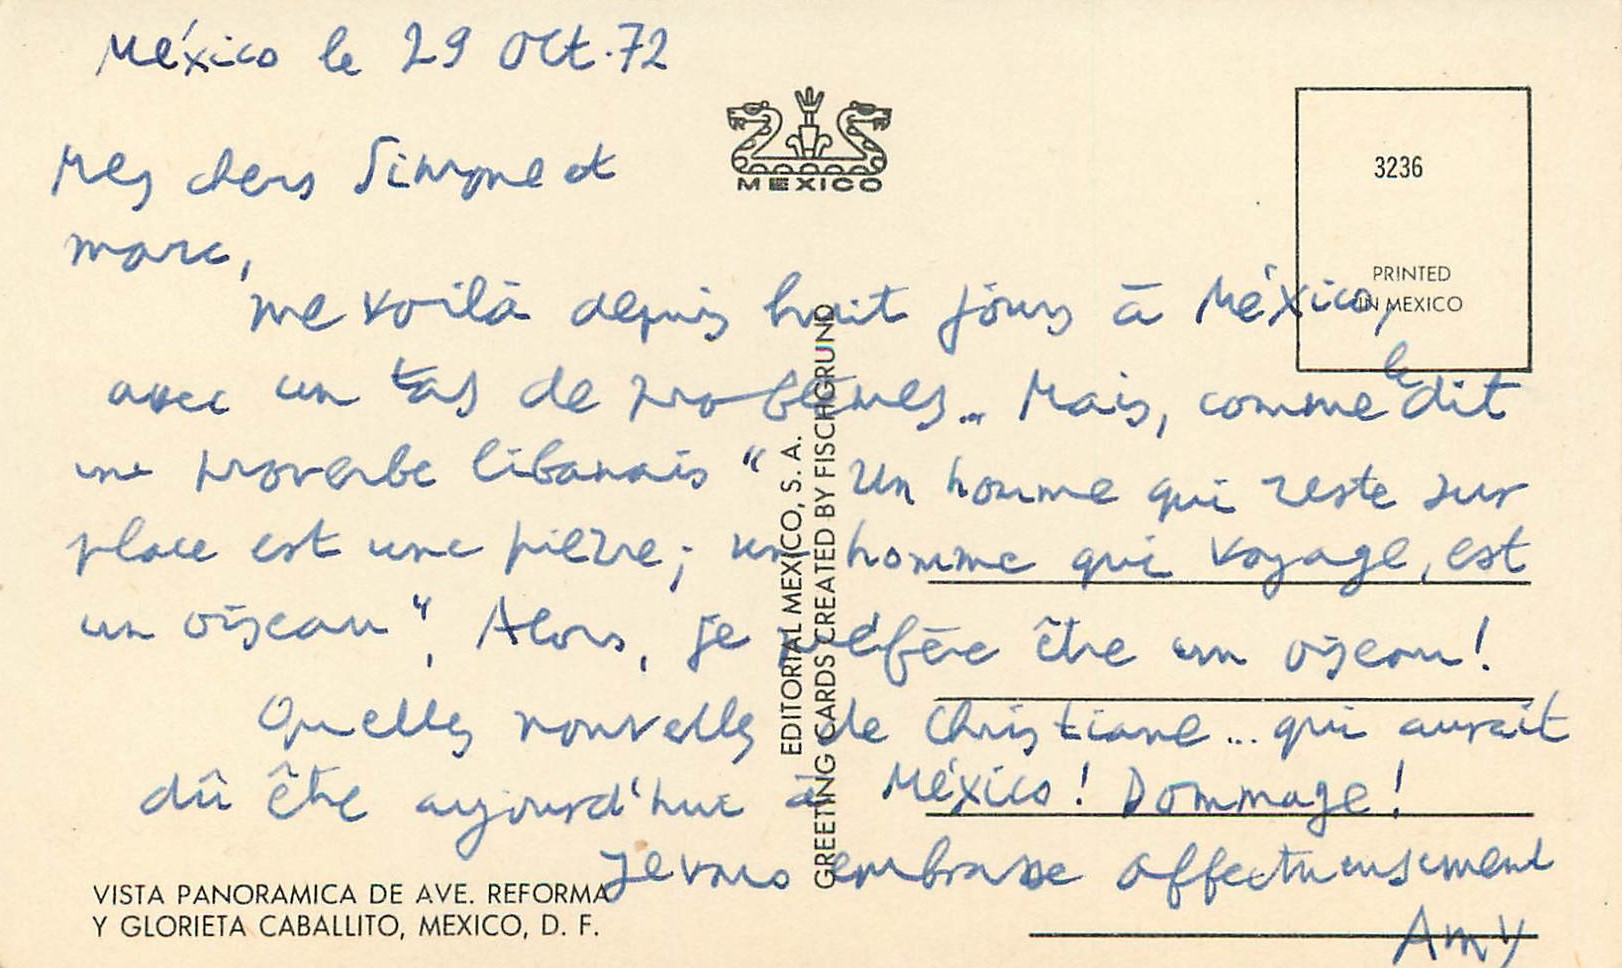 México le 29 Oct. 72
Mes chers Simone et
Marc,
me voilà depuis huit jours à México,
avec un tas de problèmes... Mais, comme le dit
un proverbe libanais " Un homme qui reste sur
place est une pierre; un homme qui voyage, est
un oiseau". Alors, je préfère être un oiseau!
Quelles nouvelles de Christiane... qui aurait
dû être aujourd'hui à México! Dommage!
Je vous embrasse affectueusement
Amy
MEXICO
3236
PRINTED
IN MEXICO
EDITORIAL MEXICO, S. A.
GREETING CARDS CREATED BY FISCHGRUND
VISTA PANORAMICA DE AVE. REFORMA
Y GLORIETA CABALLITO, MEXICO, D. F.